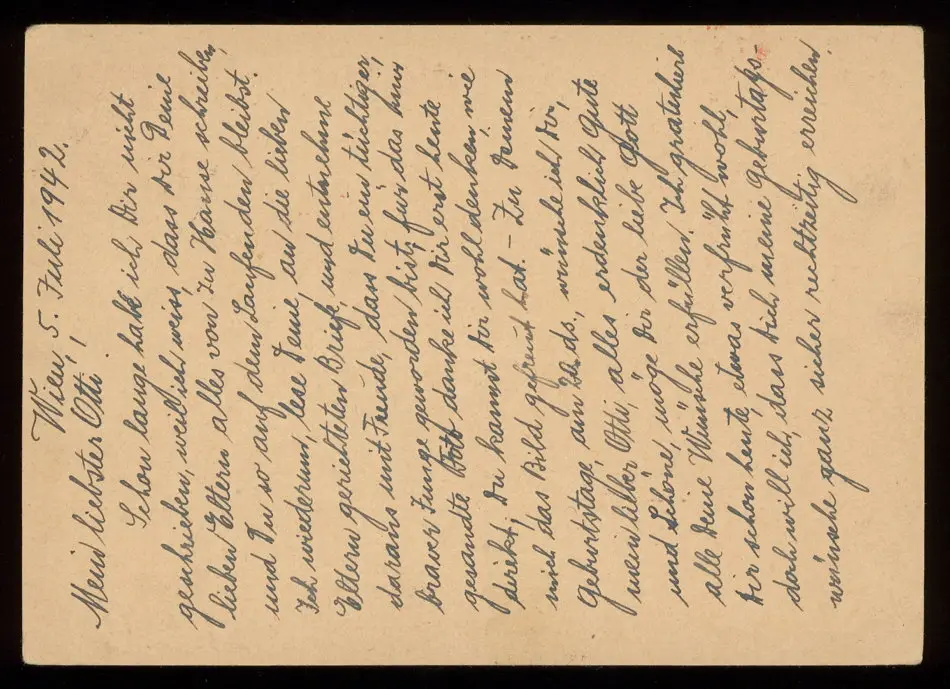 Wien, 5. Juli 1942.
Mein liebster Otti!
Schon lange habe ich Dir nicht
geschrieben, weil ich weiss, dass Dir Deine
lieben Eltern alles von zu Hause schreiben,
und Du so auf dem Laufenden bleibst.
Ich wiederum, lese Deine, an die lieben
Eltern gerichteten Briefe, und entnehme
daraus mit Freude, dass Du ein tüchtiger,
braver Junge geworden bist; für das hier
gesandte danke ich Dir erst heute
direkt; Du kannst Dir wohl denken wie
mich das Bild gefreut hat. – Zu Deinem
Geburtstage, am ds., wünsche ich Dir,
mein lieber Otti, alles erdenklich Gute
und Schöne, möge Dir der liebe Gott
alle Deine Wünsche erfüllen. Ich gratuliere
Dir schon heute, etwas verfrüht wohl,
doch will ich, dass Dich meine Geburtags-
wünsche ganz sicher rechtzeitig erreichen.